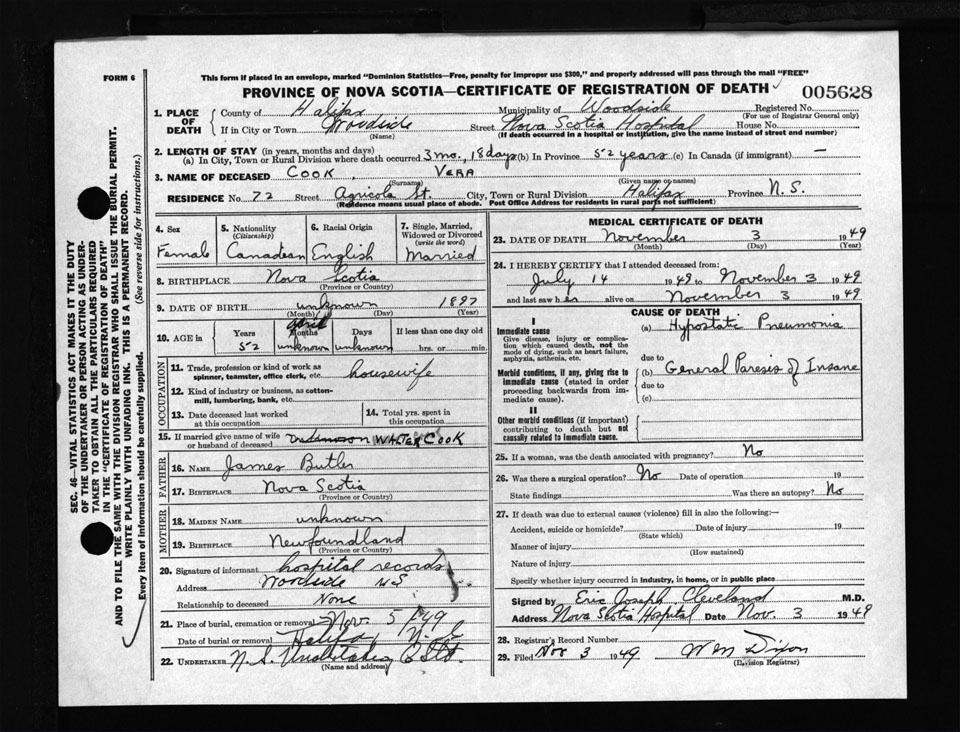 FORM 6
This form if placed in an envelope, marked "Dominion Statistics—Free, penalty for improper use $300," and properly addressed will pass through the mail "FREE"
PROVINCE OF NOVA SCOTIA—CERTIFICATE OF REGISTRATION OF DEATH
005628
1. PLACE OF DEATH
County of Halifax Municipality of Woodside Registered No.
(For use of Registrar General only)
If in City or Town Woodside Street Nova Scotia Hospital House No.
(Name) (If death occurred in a hospital or institution, give the name instead of street and number)
2. LENGTH OF STAY (in years, months and days)
(a) In City, Town or Rural Division where death occurred 3 mo., 18 days (b) In Province 52 years (c) In Canada (if immigrant) —
3. NAME OF DECEASED COOK, VERA
(Surname) (Given name or names)
RESIDENCE No. 72 Street Agricola St. City, Town or Rural Division Halifax Province N.S.
(Residence means usual place of abode. Post Office Address for residents in rural parts not sufficient)
4. Sex
Female
5. Nationality (Citizenship)
Canadian
6. Racial Origin
English
7. Single, Married, Widowed or Divorced (write the word)
Married
8. BIRTHPLACE Nova Scotia
(Province or Country)
9. DATE OF BIRTH unknown 1897
(Month) (Day) (Year)
10. AGE in
Years Months Days If less than one day old
52 unknown unknown hrs. or min.
OCCUPATION
11. Trade, profession or kind of work as spinner, teamster, office clerk, etc. housewife
12. Kind of industry or business, as cotton-mill, lumbering, bank, etc.
13. Date deceased last worked at this occupation
14. Total yrs. spent in this occupation
15. If married give name of wife or husband of deceased WALTER COOK
FATHER
16. NAME James Butler
17. BIRTHPLACE Nova Scotia
(Province or Country)
MOTHER
18. MAIDEN NAME unknown
19. BIRTHPLACE Newfoundland
(Province or Country)
20. Signature of informant hospital records
Address Woodside N S
Relationship to deceased None
21. Place of burial, cremation or removal Nov. 5 / 49
Date of burial or removal Halifax
22. UNDERTAKER N. S. Undertaking Co Ltd.
(Name and address)
MEDICAL CERTIFICATE OF DEATH
23. DATE OF DEATH November 3 1949
(Month) (Day) (Year)
24. I HEREBY CERTIFY that I attended deceased from:
July 14 1949 to November 3 1949
and last saw her alive on November 3 1949
CAUSE OF DEATH
I
Immediate cause
Give disease, injury or complication which caused death, not the mode of dying, such as heart failure, asphyxia, asthenia, etc.
(a) Hypostatic Pneumonia
due to
Morbid conditions, if any, giving rise to immediate cause (stated in order proceeding backwards from immediate cause).
(b) General Paresis of Insane
due to
(c)
II
Other morbid conditions (if important) contributing to death but not causally related to immediate cause.
25. If a woman, was the death associated with pregnancy? No
26. Was there a surgical operation? No Date of operation 19
State findings Was there an autopsy? No
27. If death was due to external causes (violence) fill in also the following:—
Accident, suicide or homicide? Date of injury 19
(State which)
Manner of injury
(How sustained)
Nature of injury
Specify whether injury occurred in industry, in home, or in public place
Signed by Eric Joseph Cleveland M.D.
Address Nova Scotia Hospital Date Nov. 3 1949
28. Registrar's Record Number
29. Filed Nov 3 1949 W M Dixon
(Division Registrar)
SEC. 46—VITAL STATISTICS ACT MAKES IT THE DUTY
OF THE UNDERTAKER OR PERSON ACTING AS UNDER-
TAKER TO OBTAIN ALL THE PARTICULARS REQUIRED
IN THE "CERTIFICATE OF REGISTRATION OF DEATH"
AND TO FILE THE SAME WITH THE DIVISION REGISTRAR WHO SHALL ISSUE THE BURIAL PERMIT.
WRITE PLAINLY WITH UNFADING INK. THIS IS A PERMANENT RECORD.
Every item of Information should be carefully supplied. (See reverse side for instructions.)